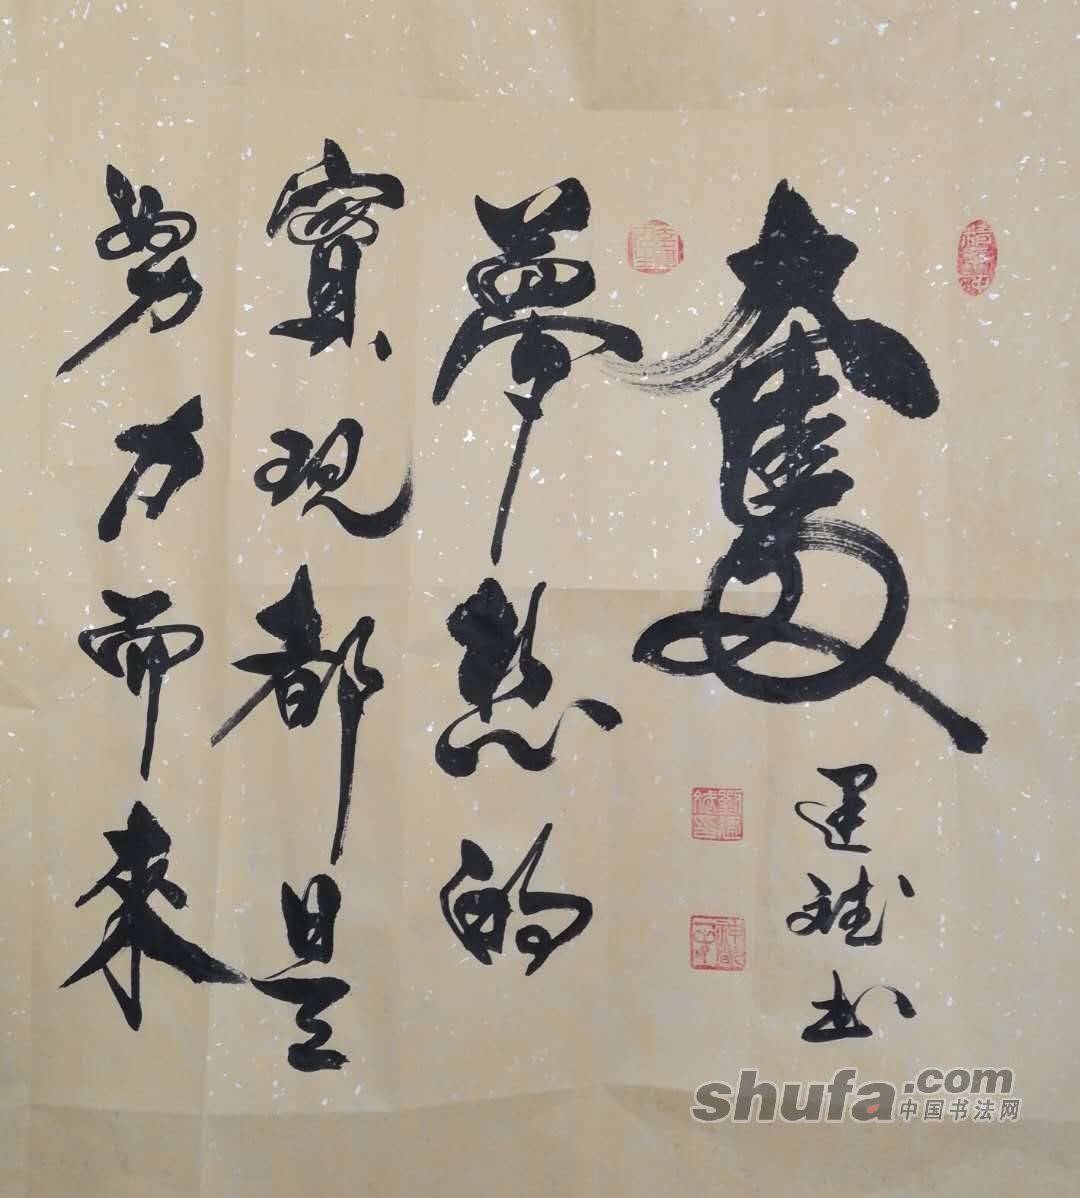 奮
建斌书
夢想的
實現都是
努力而來
shufa.com
中国书法网